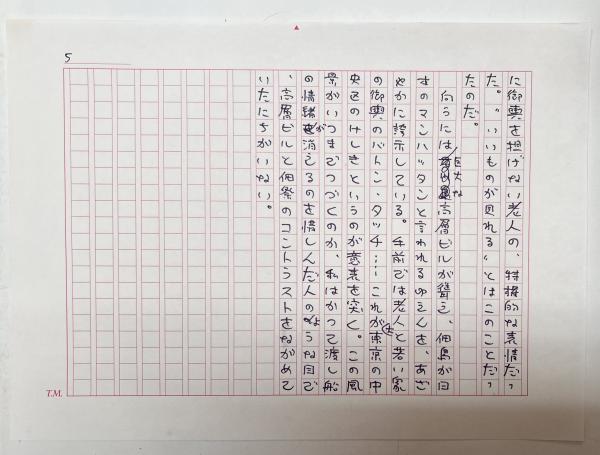 5
に御輿を担げない老人の、特権的な表情だっ
た。“いいものが見れる”とはこのことだっ
たのだ。
向うには巨大な高層ビルが聳え、佃島が日
本のマンハッタンと言われるゆえんを、あざ
やかに誇示している。手前では老人と若い衆
の御輿のバトン・タッチ……これが東京の中
央区のけしきというのが意表を突く。この風
景がいつまでつづくのか、私はかつて渡し船
の情緒が消えるのを惜しんだ人のような目で
、高層ビルと佃祭のコントラストをながめて
いたにちがいない。
T.M.